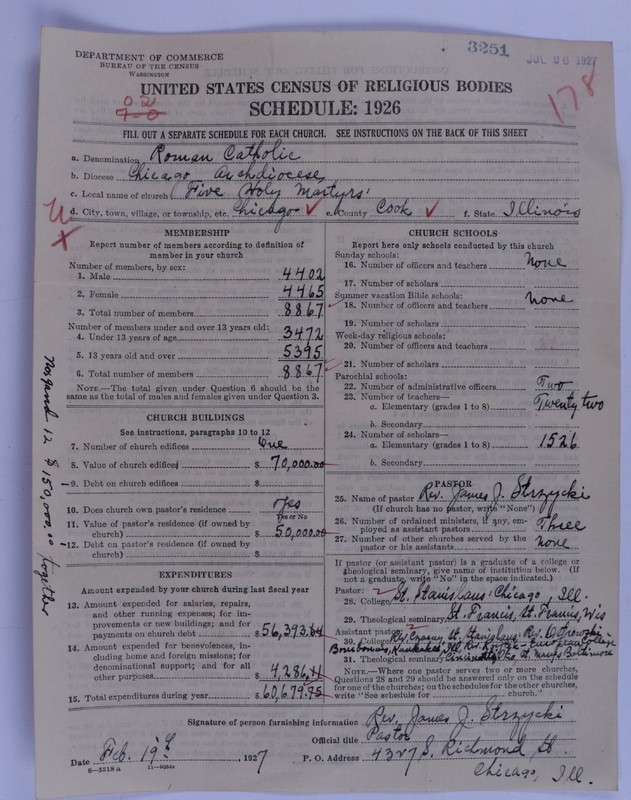 3251
JUL 26 1927
178
DEPARTMENT OF COMMERCE
BUREAU OF THE CENSUS
WASHINGTON
UNITED STATES CENSUS OF RELIGIOUS BODIES
SCHEDULE: 1926
0 2
7-0
FILL OUT A SEPARATE SCHEDULE FOR EACH CHURCH. SEE INSTRUCTIONS ON THE BACK OF THIS SHEET
a. Denomination Roman Catholic
b. Diocese Chicago Archdiocese
c. Local name of church Five Holy Martyrs'
d. City, town, village, or township, etc. Chicago e. County Cook f. State Illinois
MEMBERSHIP
Report number of members according to definition of
member in your church
Number of members, by sex:
1. Male 4402
2. Female 4465
3. Total number of members 8867
Number of members under and over 13 years old:
4. Under 13 years of age 3472
5. 13 years old and over 5395
6. Total number of members 8867
NOTE.—The total given under Question 6 should be the
same as the total of males and females given under Question 3.
CHURCH BUILDINGS
See instructions, paragraphs 10 to 12
7. Number of church edifices One
8. Value of church edifices $ 70,000.00
9. Debt on church edifices $
10. Does church own pastor's residence yes
Yes or No
11. Value of pastor's residence (if owned by
church) $ 50,000.00
12. Debt on pastor's residence (if owned by
church) $
12 $150,000.00 together
EXPENDITURES
Amount expended by your church during last fiscal year
13. Amount expended for salaries, repairs,
and other running expenses; for im-
provements or new buildings; and for
payments on church debt $ 56,393.64
14. Amount expended for benevolences, in-
cluding home and foreign missions; for
denominational support; and for all
other purposes $ 4,286.11
15. Total expenditures during year $ 60,679.75
CHURCH SCHOOLS
Report here only schools conducted by this church
Sunday schools:
16. Number of officers and teachers None
17. Number of scholars
Summer vacation Bible schools:
18. Number of officers and teachers None
19. Number of scholars
Week-day religious schools:
20. Number of officers and teachers
21. Number of scholars
Parochial schools:
22. Number of administrative officers Two
23. Number of teachers—
a. Elementary (grades 1 to 8) Twenty two
b. Secondary
24. Number of scholars—
a. Elementary (grades 1 to 8) 1526
b. Secondary
PASTOR
25. Name of pastor Rev. James J. Strzycki
(If church has no pastor, write "None")
26. Number of ordained ministers, if any, em-
ployed as assistant pastors Three
27. Number of other churches served by the
pastor or his assistants none
If pastor (or assistant pastor) is a graduate of a college or
theological seminary, give name of institution below. (If
not a graduate, write "No" in the space indicated.)
Pastor:
28. College St. Stanislaus' Chicago, Ill.
29. Theological seminary St. Francis, St. Francis, Wis
Assistant pastor:
30. College St. Stanislaus. Rev.
Kankakee, Ill. Rev.
31. Theological seminary St. Marys Baltimore
NOTE.—Where one pastor serves two or more churches,
Questions 28 and 29 should be answered only on the schedule
for one of the churches; on the schedules for the other churches,
write "See schedule for church."
Signature of person furnishing information Rev. James J. Strzycki
Official title Pastor
Date Feb. 19th, 1927 P. O. Address 4327 S. Richmond St.
8—3318a
Chicago, Ill.